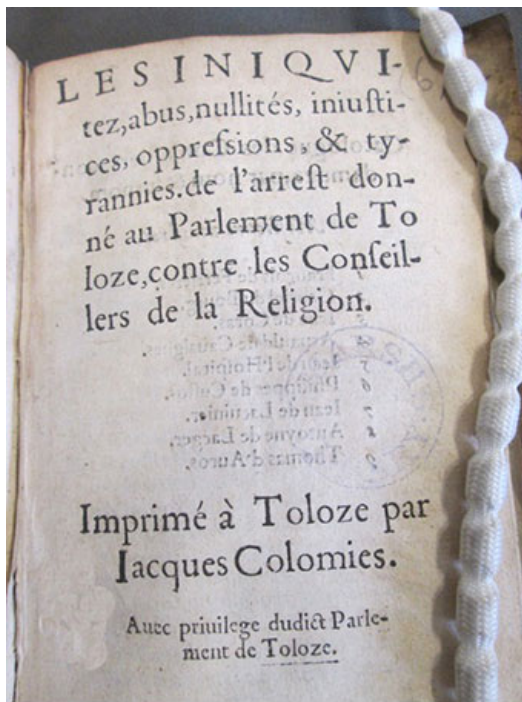 LES INIQVI-
tez,abus,nullités, iniuſti-
ces, oppreſsions, & ty-
rannies.de l'arreſt don-
né au Parlement de To
loze,contre les Conſeil-
lers de la Religion.
Imprimé à Toloze par
Iacques Colomies.
Auec priuilege dudict Parle-
ment de Toloze.